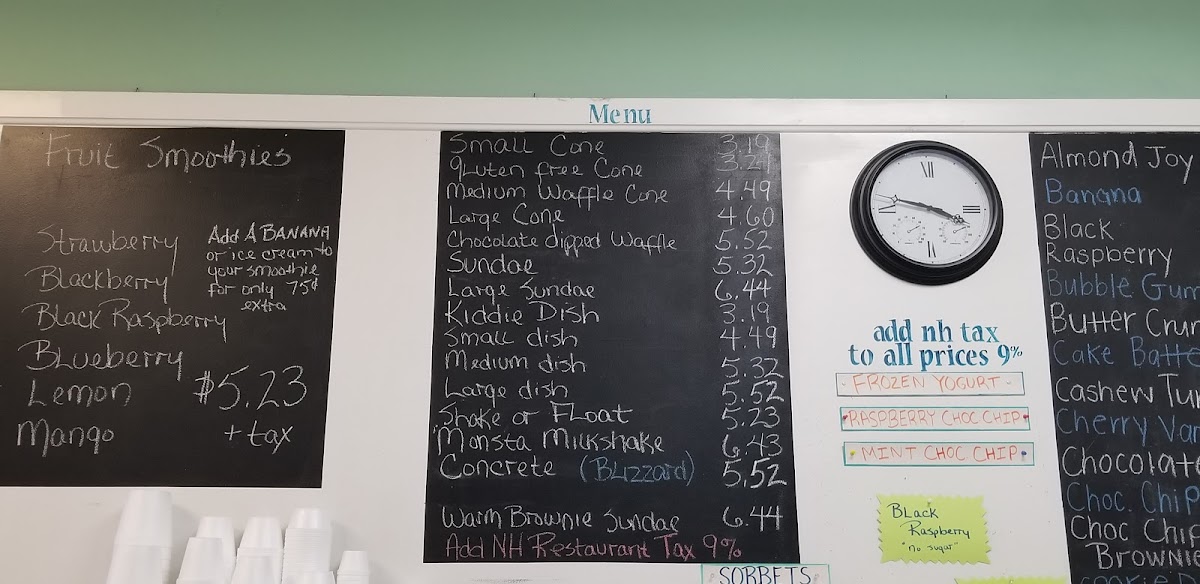 Menu
Fruit Smoothies
Strawberry
Blackberry
Black Raspberry
Blueberry
Lemon
Mango
Add A BANANA
or ice cream to
your smoothie
for only 75¢
extra
$5.23
+ tax
Small Cone 3.19
gluten free Cone 3.29
Medium Waffle Cone 4.49
Large Cone 4.60
Chocolate dipped Waffle 5.52
Sundae 5.32
Large Sundae 6.44
Kiddie Dish 3.19
Small dish 4.49
Medium dish 5.32
Large dish 5.52
Shake or Float 5.23
Monsta Milkshake 6.43
Concrete (Blizzard) 5.52
Warm Brownie Sundae 6.44
Add NH Restaurant Tax 9%
XII
III
VI
add nh tax
to all prices 9%
FROZEN YOGURT
RASPBERRY CHOC CHIP
MINT CHOC CHIP
Black
Raspberry
"no sugar"
SORBETS
Almond Joy
Banana
Black
Raspberry
Bubble Gum
Butter Crun
Cake Batte
Cashew Tur
Cherry Van
Chocolate
Choc. Chip
Choc Chip
Brownie